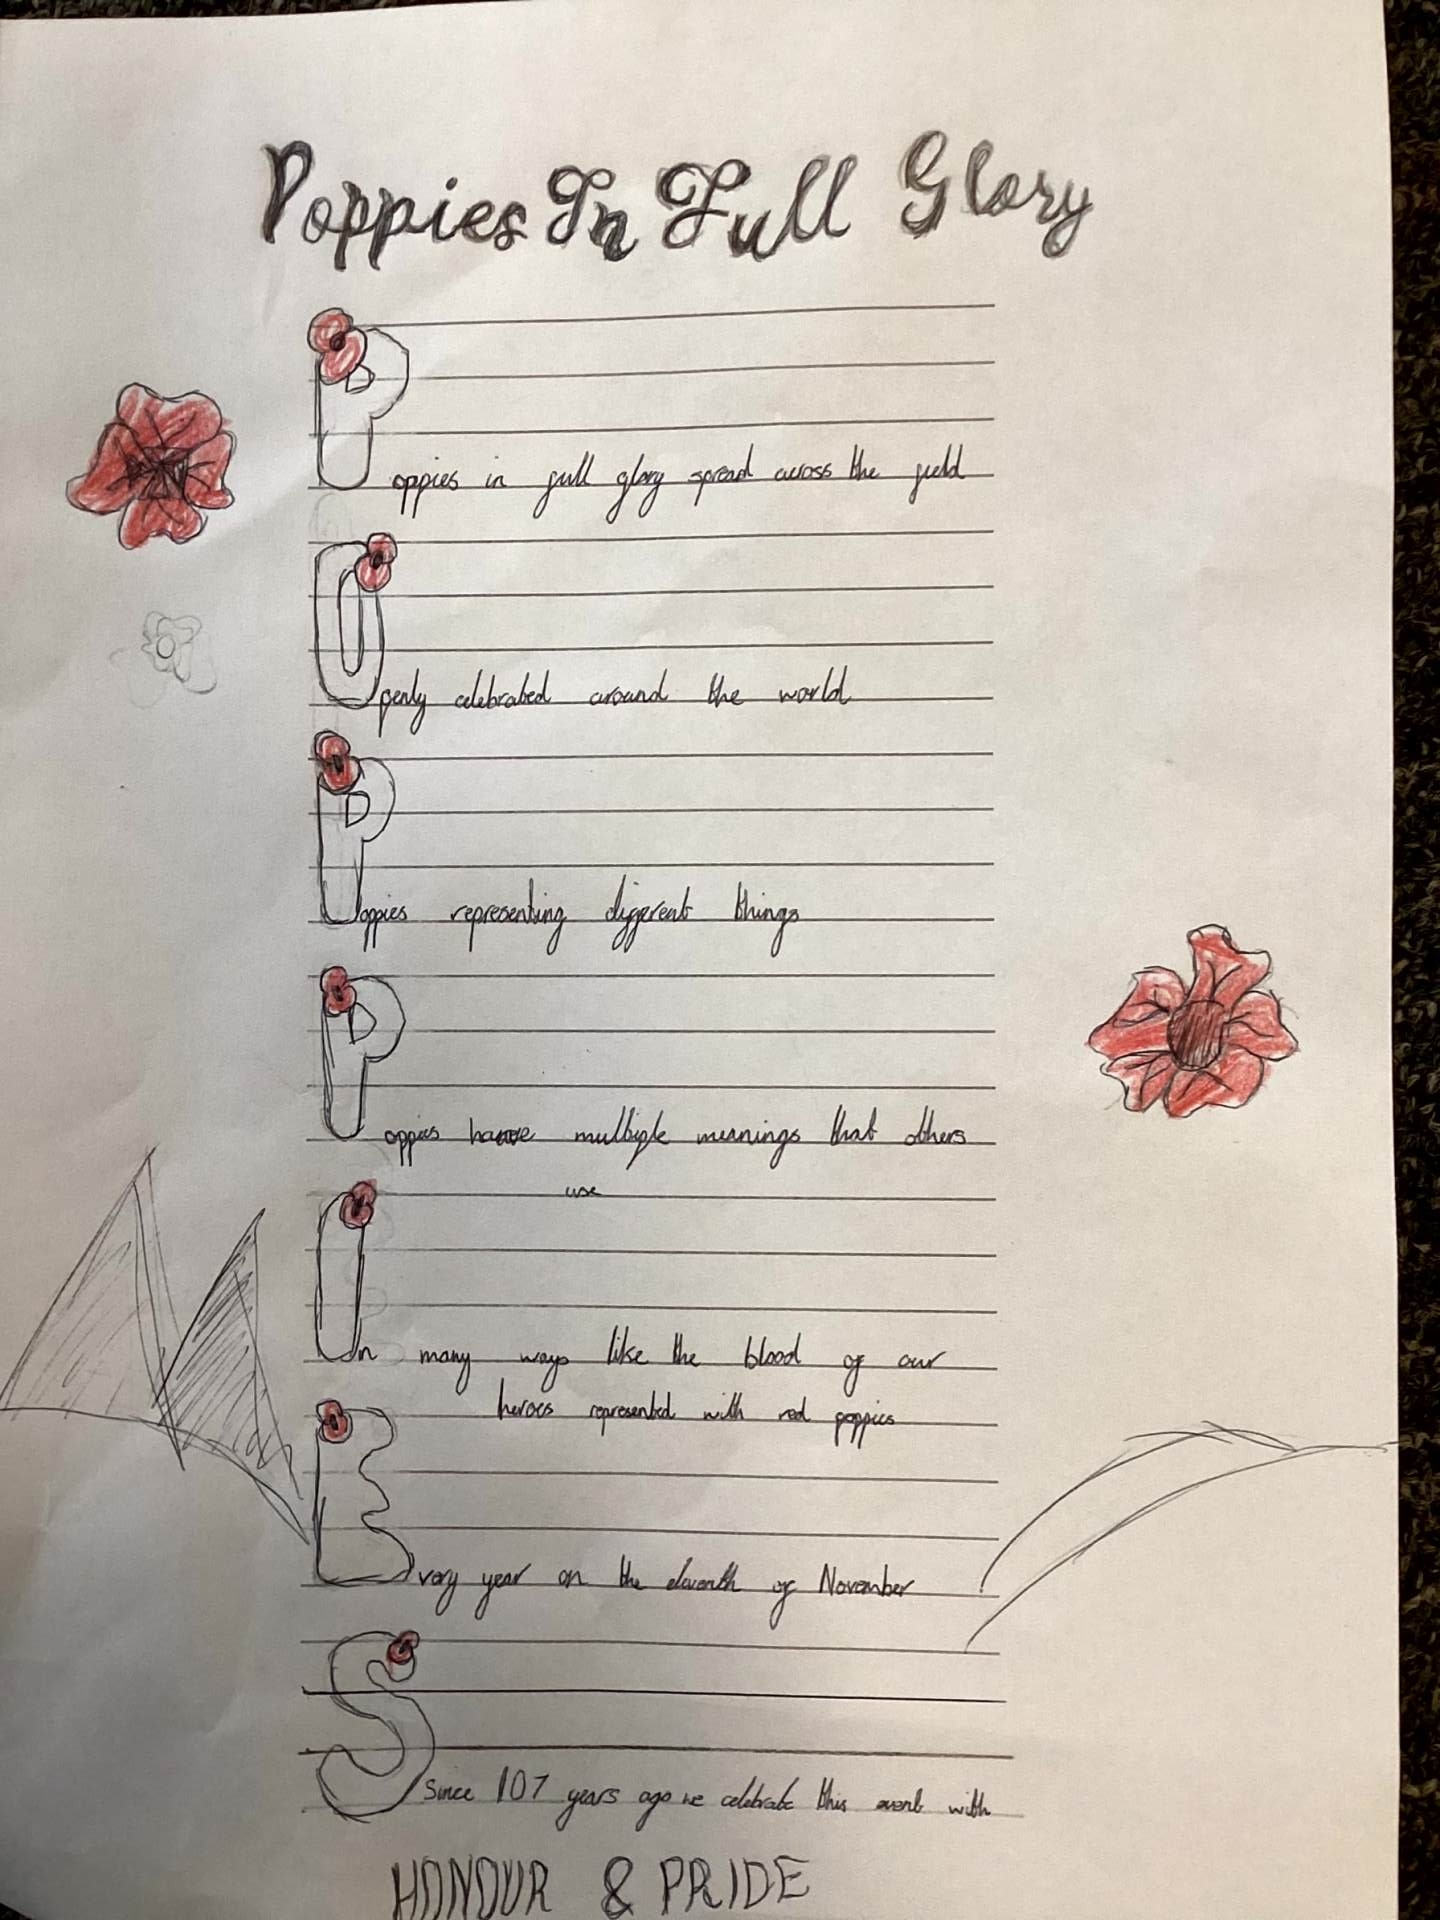 Poppies In Full Glory
Poppies in full glory spread across the field
Openly celebrated around the world
Poppies representing different things
Poppies have multiple meanings that others
use
In many ways like the blood of our
heroes represented with red poppies
Every year on the eleventh of November
S since 107 years ago we celebrate this event with
HONOUR & PRIDE